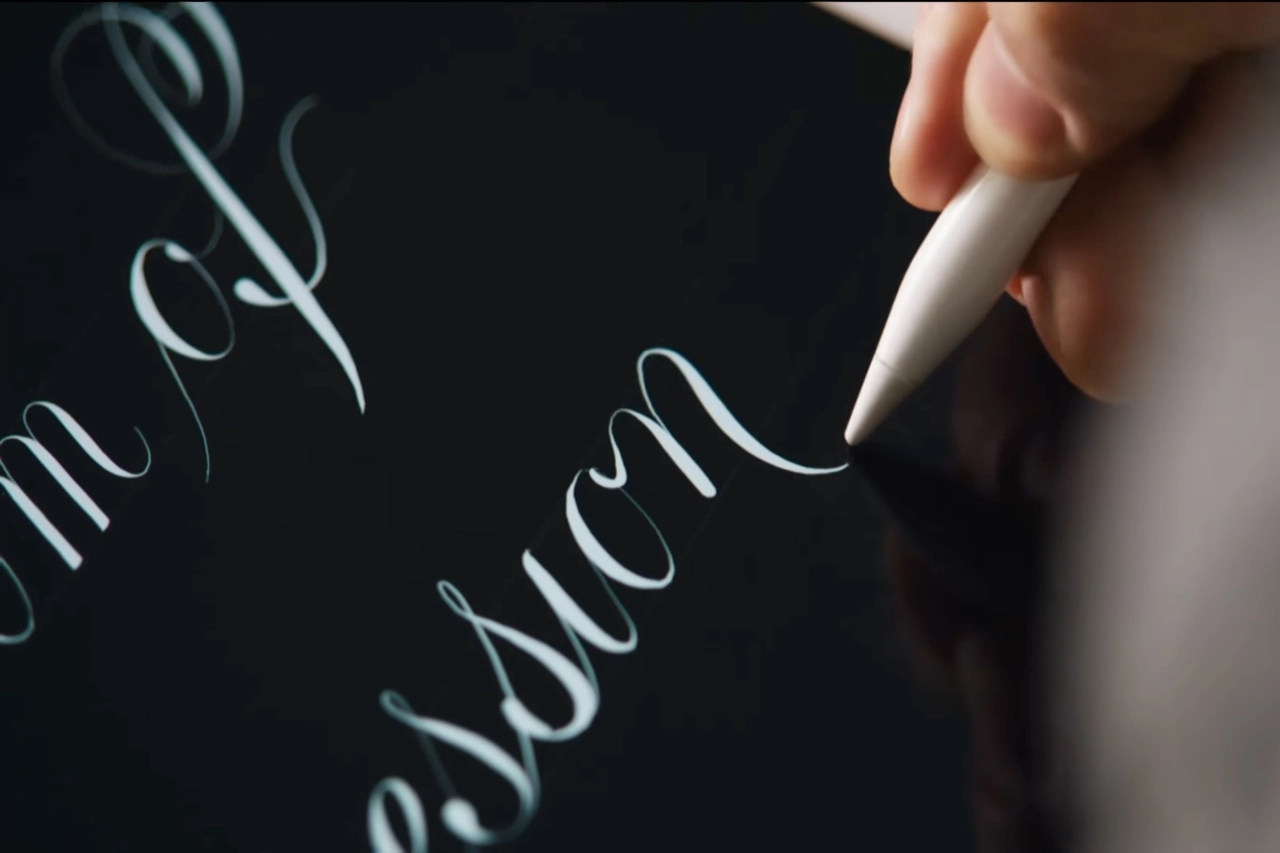 m of
ession